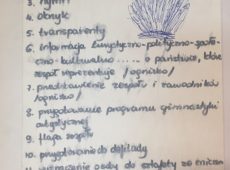 3. hymn
4. okrzyk
5. transparenty
6. informacja turystyczno-polityczno-społe-
czno-kulturalna ...... o państwie, które
zespół reprezentuje /ognisko/
7. przedstawienie zespołu i zawodników
/ognisko/
8. przygotowanie programu gimnastyki
artystycznej
9. flaga zespołu
10. przygotowanie do defilady
11. wyznaczenie osoby do sztafety ze zniczem